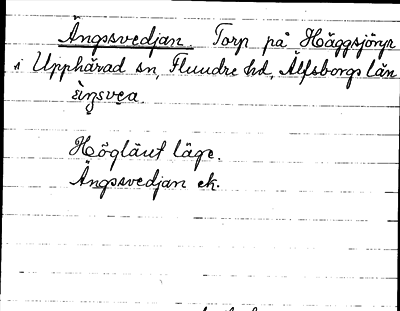 Ängsvedjan. Torp på Häggsjöryr
i Upphärad sn, Flundre hd, Älfsborgs län
ängsvea.
Högläut läge.
Ängsvedjan ek.